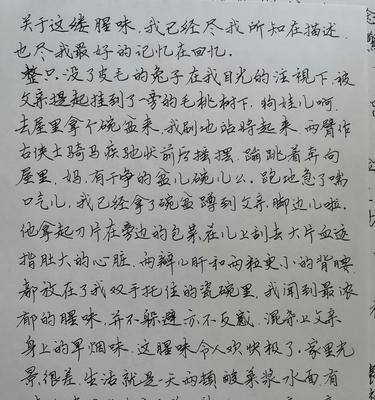 关于这缕腥味,我已经尽我所知在描述,
也尽我最好的记忆在回忆.
整只.没了皮毛的兔子在我目光的注視下.被
父亲提起挂到了一旁的毛桃树下.狗娃儿啊.
去屋里拿个碗盆来.我刷地站将起来.两臂作
右侠士骑马疾驰状前后摇摆.蹦跳着奔向
屋里.妈.有干净的盆儿碗儿么.跑地急了喘
口气儿.我已经拿了碗盆蹲到父亲脚边儿啦.
他拿起刀片在旁边的包菜在儿上刮去大片血迹
指肚大的心脏.两瓣儿肝和两粒更小的背腰
都放在了我双手托住的瓷碗里.我闻到最浓
郁的腥味.并不躲避亦不反感.混杂上父亲
身上的旱烟味.这腥味令人欢快极了.家里光
景很差.生活就是一天两顿酸菜浆水面.有